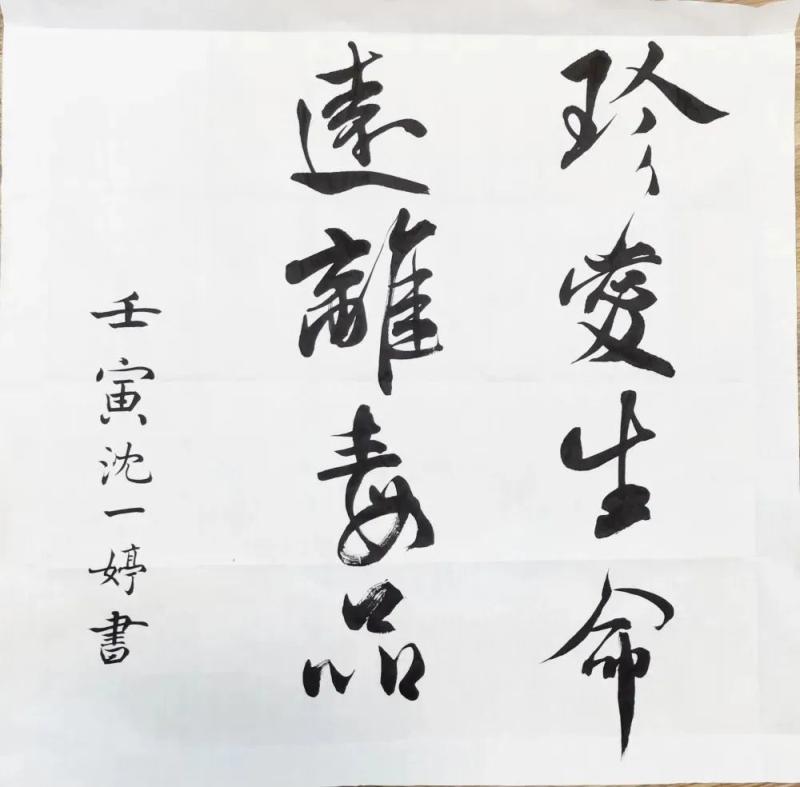 珍愛生命
遠離毒品
壬寅沈一婷書